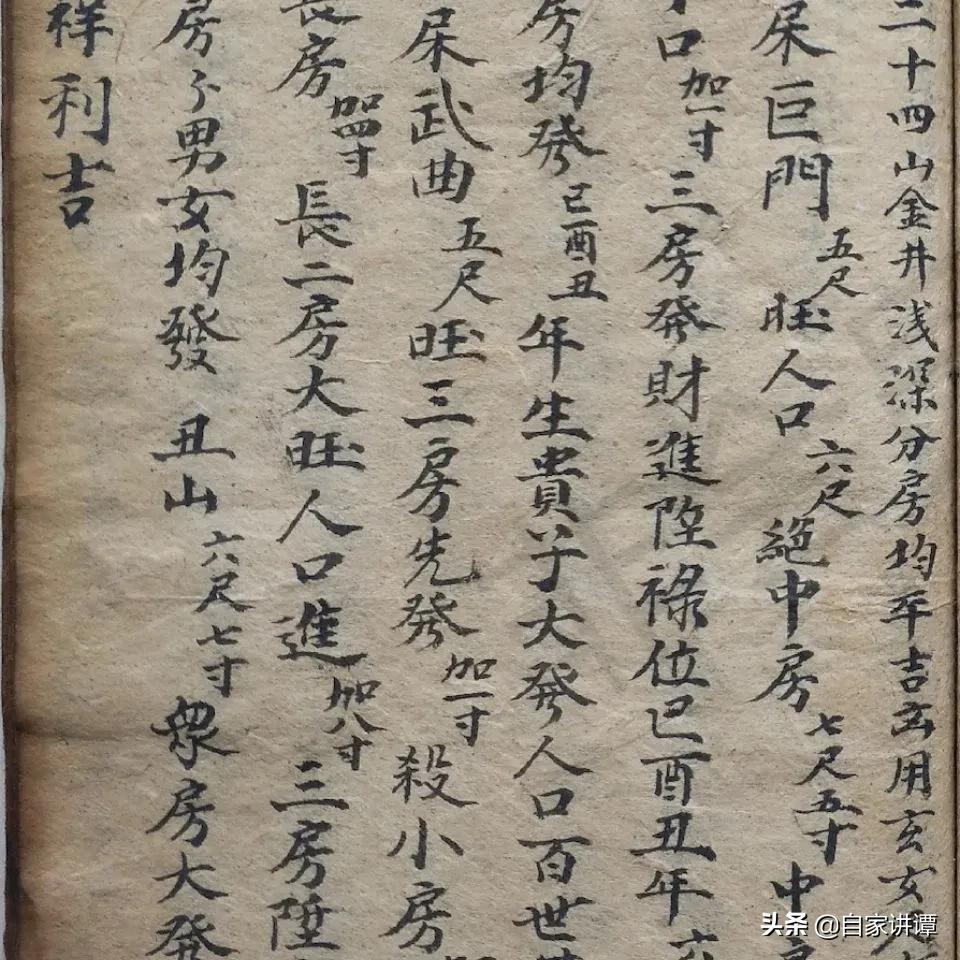 二十四山金井浅深分房均平吉玄用玄女
杘巨門五尺旺人口六尺絕中房七尺五寸中
口加一寸三房發財進陞祿位巳酉丑年六
房均發巳酉丑年生貴子大發人口百世
杘武曲五尺旺三房先發加一寸殺小房
長房加四寸長二房大旺人口進加八寸三房陞
房子男女均發丑山六尺七寸衆房大發
祥利吉
头条 @自家讲谭